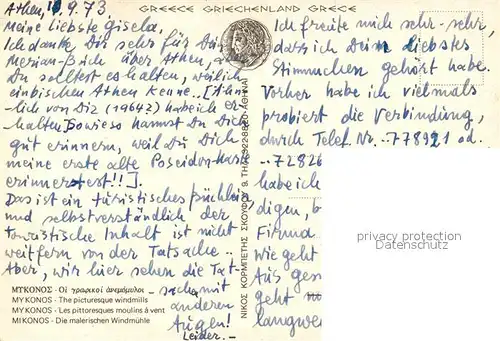 GREECE GRIECHENLAND GRECE
Athen, 1.9.73
Meine liebste Gisela,
Ich danke Dir sehr für Dein
Merian-Buch über Athen,
Du solltest es halten, weil ich
ein bischen Athen kenne.. [Ähn-
lich von Diz (1964?) habe ich er-
halten. Sowieso kannst Du Dich
gut erinnern, weil Du Dich
meine erste alte Poseidon-Karte
erinnertest!!].
Das ist ein turistisches Büchlein
und selbstverständlich der
touristische Inhalt ist nicht
weit fern von der Tatsache..
Aber, wir hier sehen die Tat-
sache mit
anderen
Augen!
Leider.-
ΜΥΚΟΝΟΣ - Οἱ γραφικοί ἀνεμόμυλοι
MYKONOS - The picturesque windmills
MYKONOS - Les pittoresques moulins á vent
MIKONOS - Die malerischen Windmühle
ΝΙΚΟΣ ΚΟΡΜΠΕΤΗΣ ΣΚΟΥΦΟΥ 9. ΤΗΛ. ΑΘΗΝΑΙ
Ich freute mich sehr-sehr,
dass ich Deine liebstes
Stimmchen gehört habe.
Vorher habe ich vielmals
probiert die Verbindung,
durch Telef. Nr. 778921 od.
..72826
habe ich
digen, b
Firma
wie geht
Aus ges
geht
langwei
privacy protection
Datenschutz